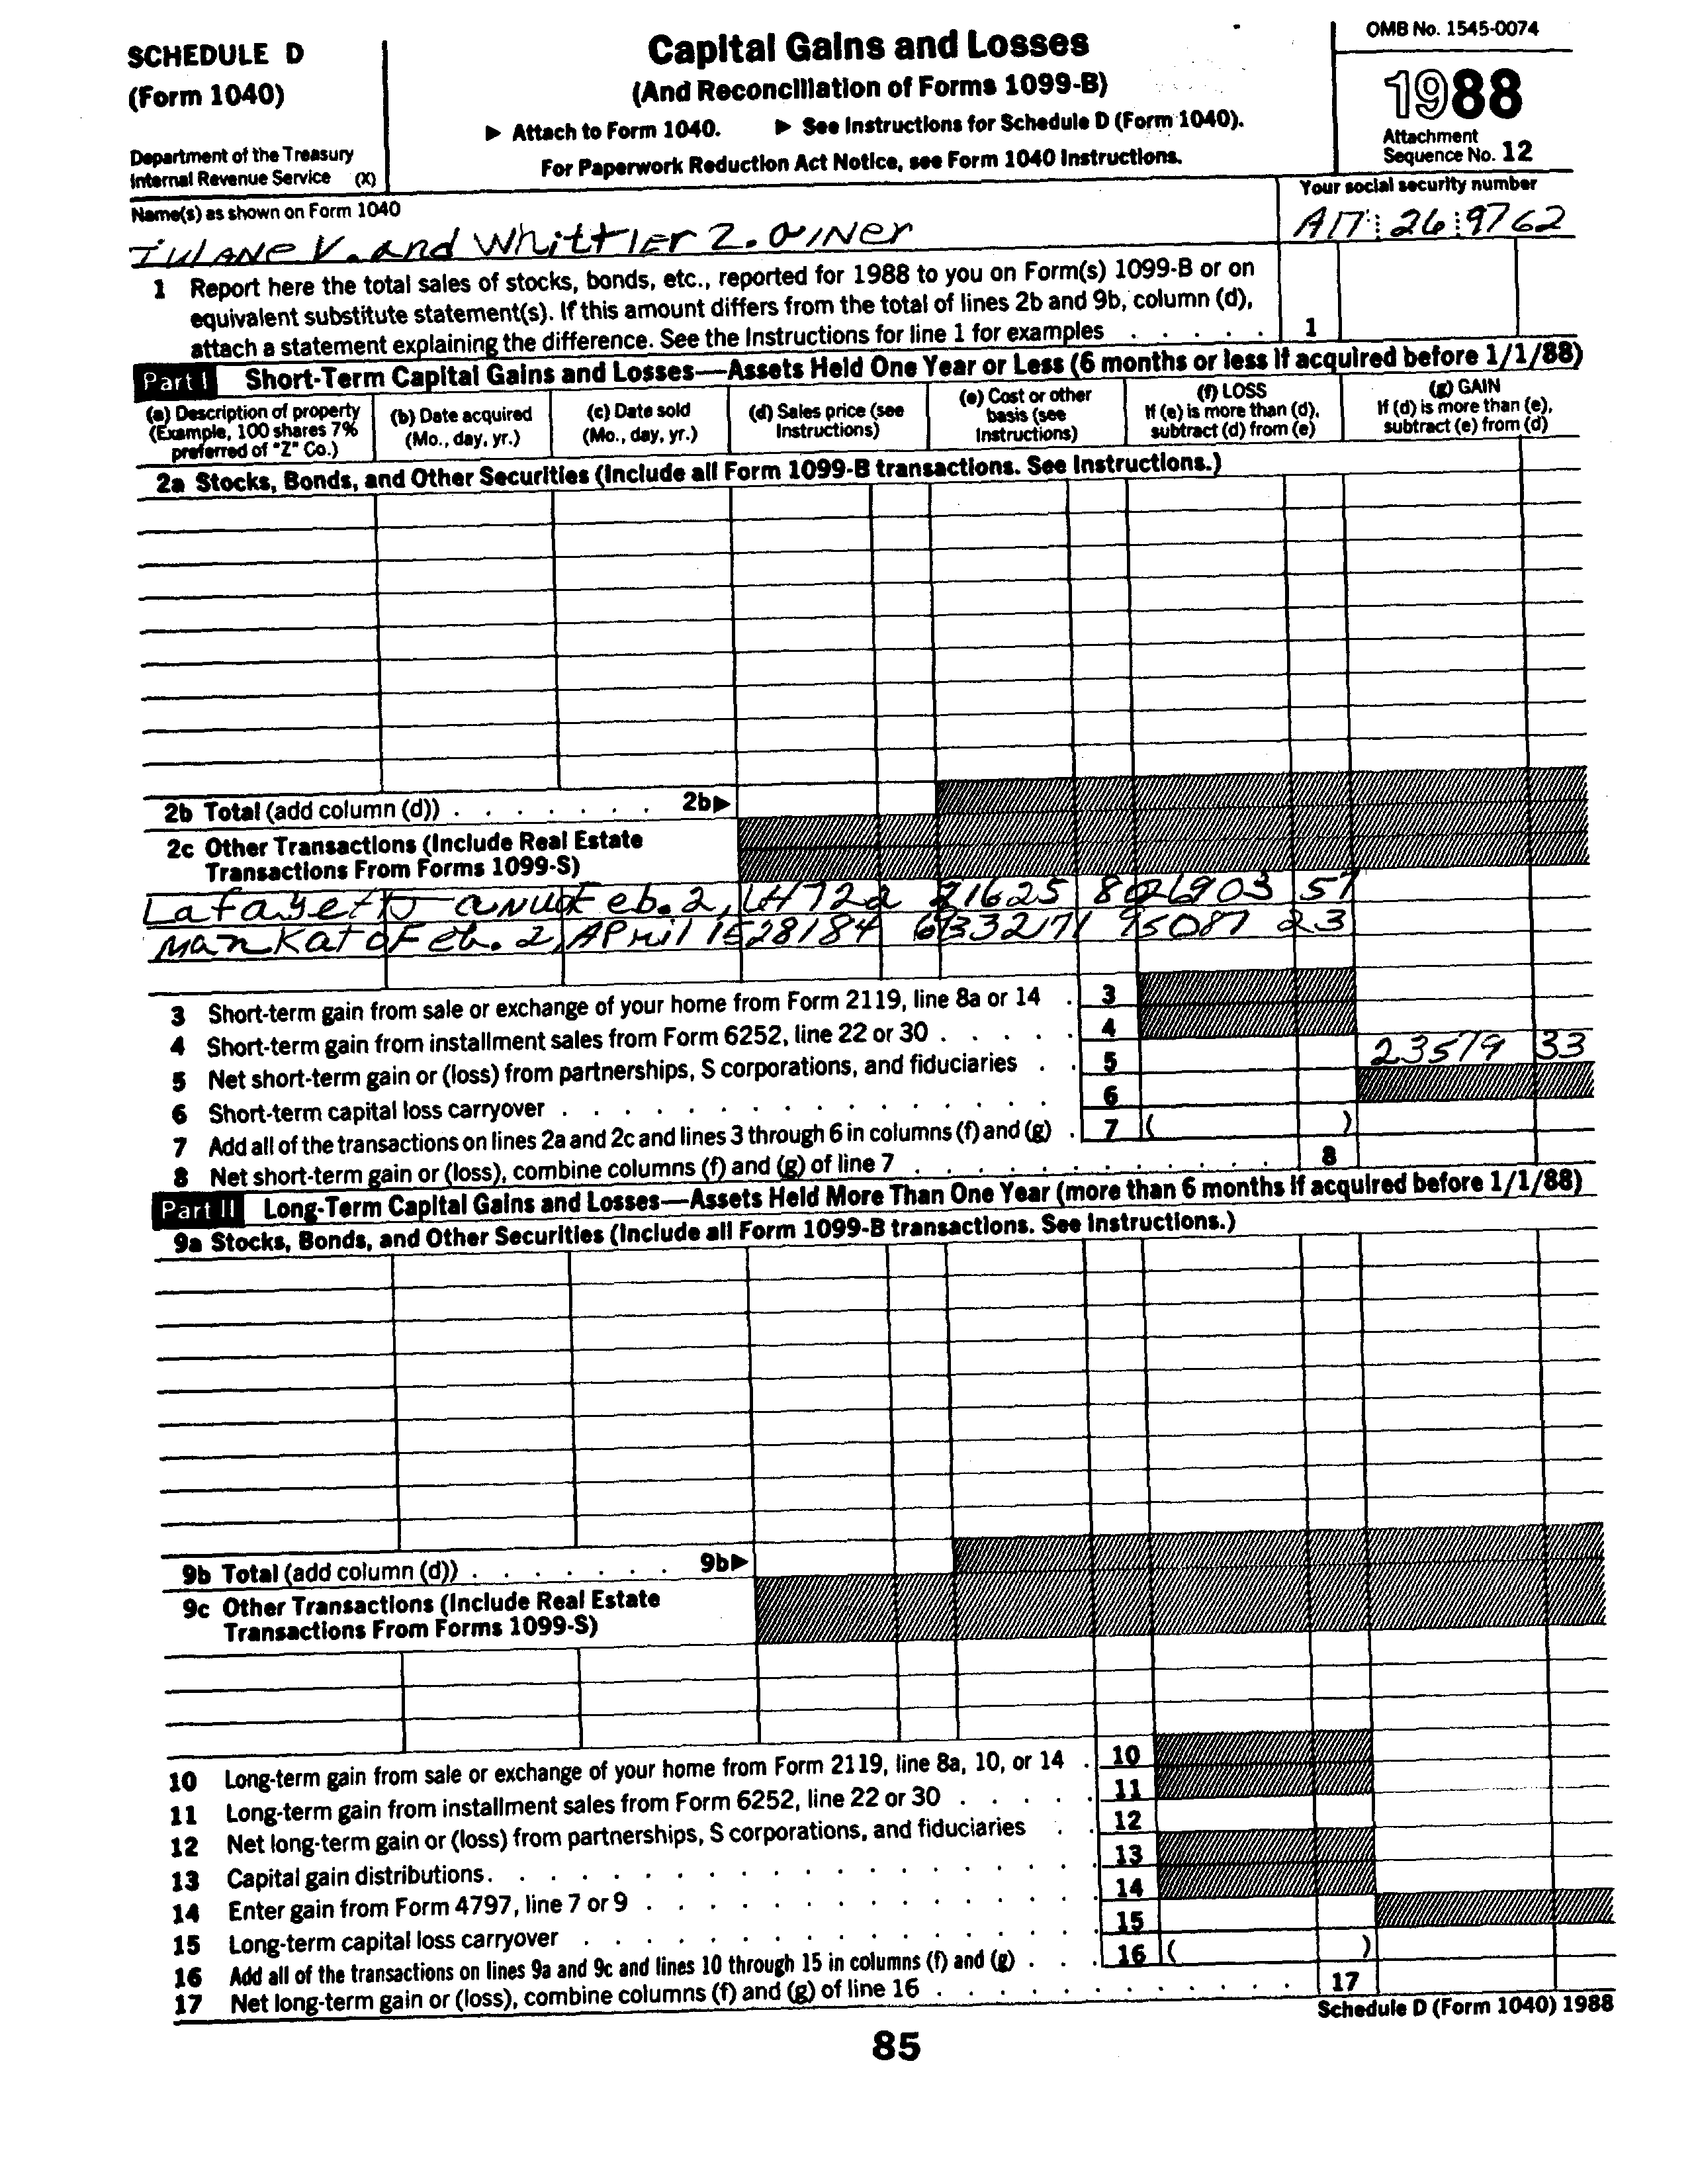 SCHEDULE D
(Form 1040)
Department of the Treasury
Internal Revenue Service (X)
Capital Gains and Losses
(And Reconciliation of Forms 1099-B)
▶ Attach to Form 1040. ▶ See Instructions for Schedule D (Form 1040).
For Paperwork Reduction Act Notice, see Form 1040 Instructions.
OMB No. 1545-0074
1988
Attachment
Sequence No. 12
Name(s) as shown on Form 1040
Your social security number
TulANe V. and Whittier Z.
26 9762
1 Report here the total sales of stocks, bonds, etc., reported for 1988 to you on Form(s) 1099-B or on
equivalent substitute statement(s). If this amount differs from the total of lines 2b and 9b, column (d),
attach a statement explaining the difference. See the Instructions for line 1 for examples . . . . . 1
Part I Short-Term Capital Gains and Losses—Assets Held One Year or Less (6 months or less if acquired before 1/1/88)
(a) Description of property
(Example, 100 shares 7%
preferred of "Z" Co.)
(b) Date acquired
(Mo., day, yr.)
(c) Date sold
(Mo., day, yr.)
(d) Sales price (see
Instructions)
(e) Cost or other
basis (see
Instructions)
(f) LOSS
If (e) is more than (d),
subtract (d) from (e)
(g) GAIN
If (d) is more than (e),
subtract (e) from (d)
2a Stocks, Bonds, and Other Securities (Include all Form 1099-B transactions. See Instructions.)
2b Total (add column (d)) . . . . . . . 2b▶
2c Other Transactions (Include Real Estate
Transactions From Forms 1099-S)
Feb. 2, 57
Mankato Feb. 2, April 23
3 Short-term gain from sale or exchange of your home from Form 2119, line 8a or 14 . 3
4 Short-term gain from installment sales from Form 6252, line 22 or 30 . . . . . 4
5 Net short-term gain or (loss) from partnerships, S corporations, and fiduciaries . . 5 23579 33
6 Short-term capital loss carryover . . . . . . . . . . . . . . . 6
7 Add all of the transactions on lines 2a and 2c and lines 3 through 6 in columns (f) and (g) . 7 ( )
8 Net short-term gain or (loss), combine columns (f) and (g) of line 7 . . . . . . . . . . . . 8
Part II Long-Term Capital Gains and Losses—Assets Held More Than One Year (more than 6 months if acquired before 1/1/88)
9a Stocks, Bonds, and Other Securities (Include all Form 1099-B transactions. See Instructions.)
9b Total (add column (d)) . . . . . . . 9b▶
9c Other Transactions (Include Real Estate
Transactions From Forms 1099-S)
10 Long-term gain from sale or exchange of your home from Form 2119, line 8a, 10, or 14 . 10
11 Long-term gain from installment sales from Form 6252, line 22 or 30 . . . . . 11
12 Net long-term gain or (loss) from partnerships, S corporations, and fiduciaries . . 12
13 Capital gain distributions . . . . . . . . . . . . . . . . . 13
14 Enter gain from Form 4797, line 7 or 9 . . . . . . . . . . . . 14
15 Long-term capital loss carryover . . . . . . . . . . . . . . 15
16 Add all of the transactions on lines 9a and 9c and lines 10 through 15 in columns (f) and (g) . . . 16 ( )
17 Net long-term gain or (loss), combine columns (f) and (g) of line 16 . . . . . . . . . . . 17
Schedule D (Form 1040) 1988
85